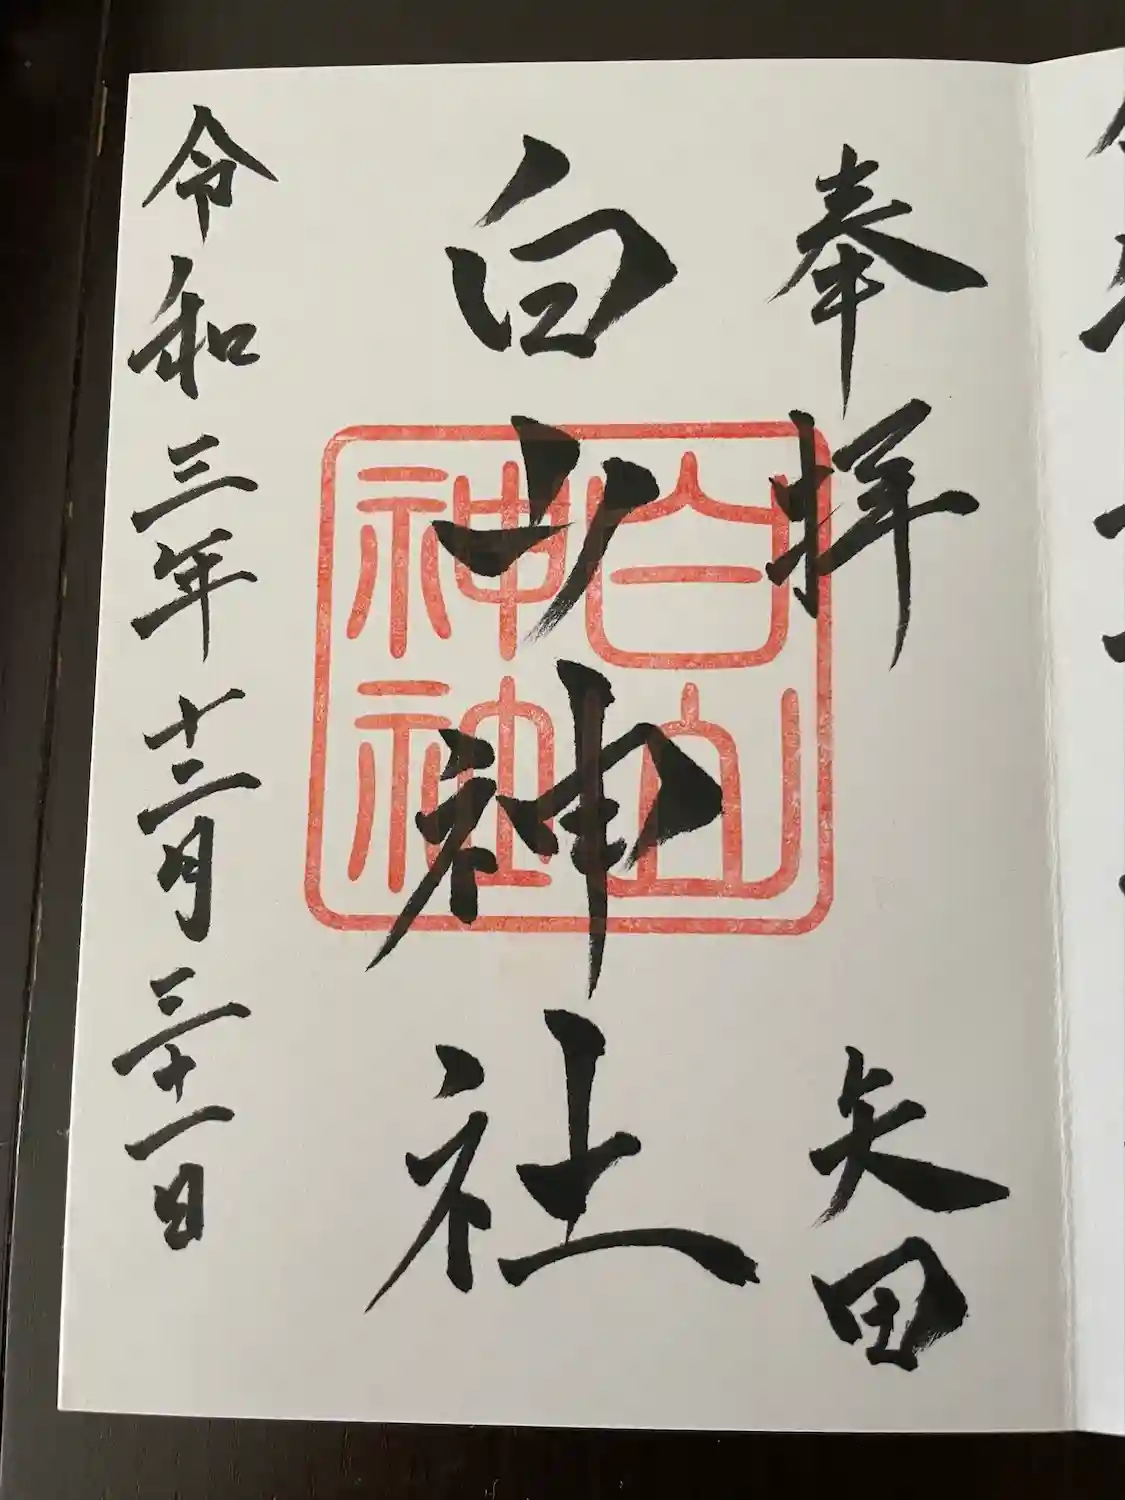 奉拝 矢田
白山神社
白山
神社
令和三年十二月三十一日